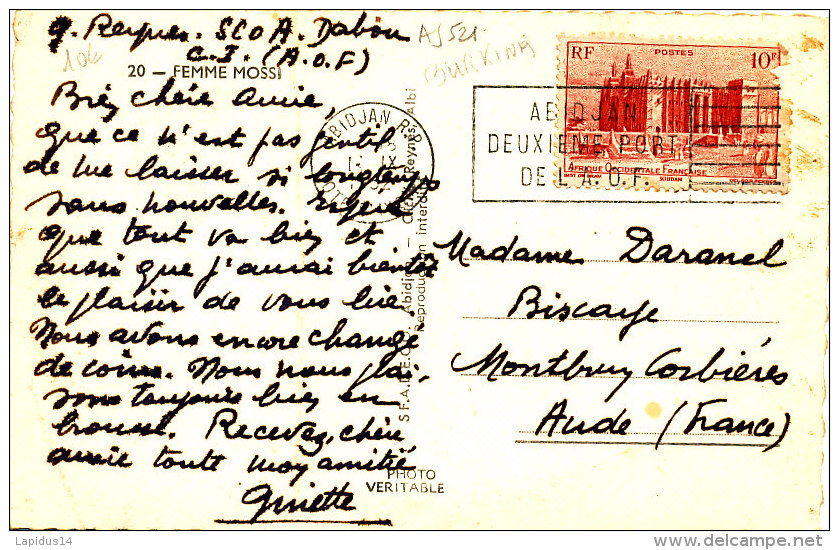 SCOA. Dabou
C.I. (A.O.F)
106
AS 521
BURKINA
20 — FEMME MOSSI
Bien chère amie,
que ce n'est pas gentil
de me laisser si longtemps
sans nouvelles. Espère
que tout va bien et
aussi que j'aurai bientôt
le plaisir de vous lire.
Nous avons encore changé
de coins. Nous nous plai,
sons toujours bien en
brousse. Recevez, chère
amie toute mon amitié
Ginette
PHOTO
VERITABLE
Reproduction interdite
ABIDJAN RP
RF POSTES 10F
AFRIQUE OCCIDENTALE FRANÇAISE
SOUDAN
ABIDJAN
DEUXIEME PORT
DE L'A.O.F.
Madame Daranel
Biscaye
Montbrun Corbières
Aude (France)
Lapidus14
www.delcampe.net